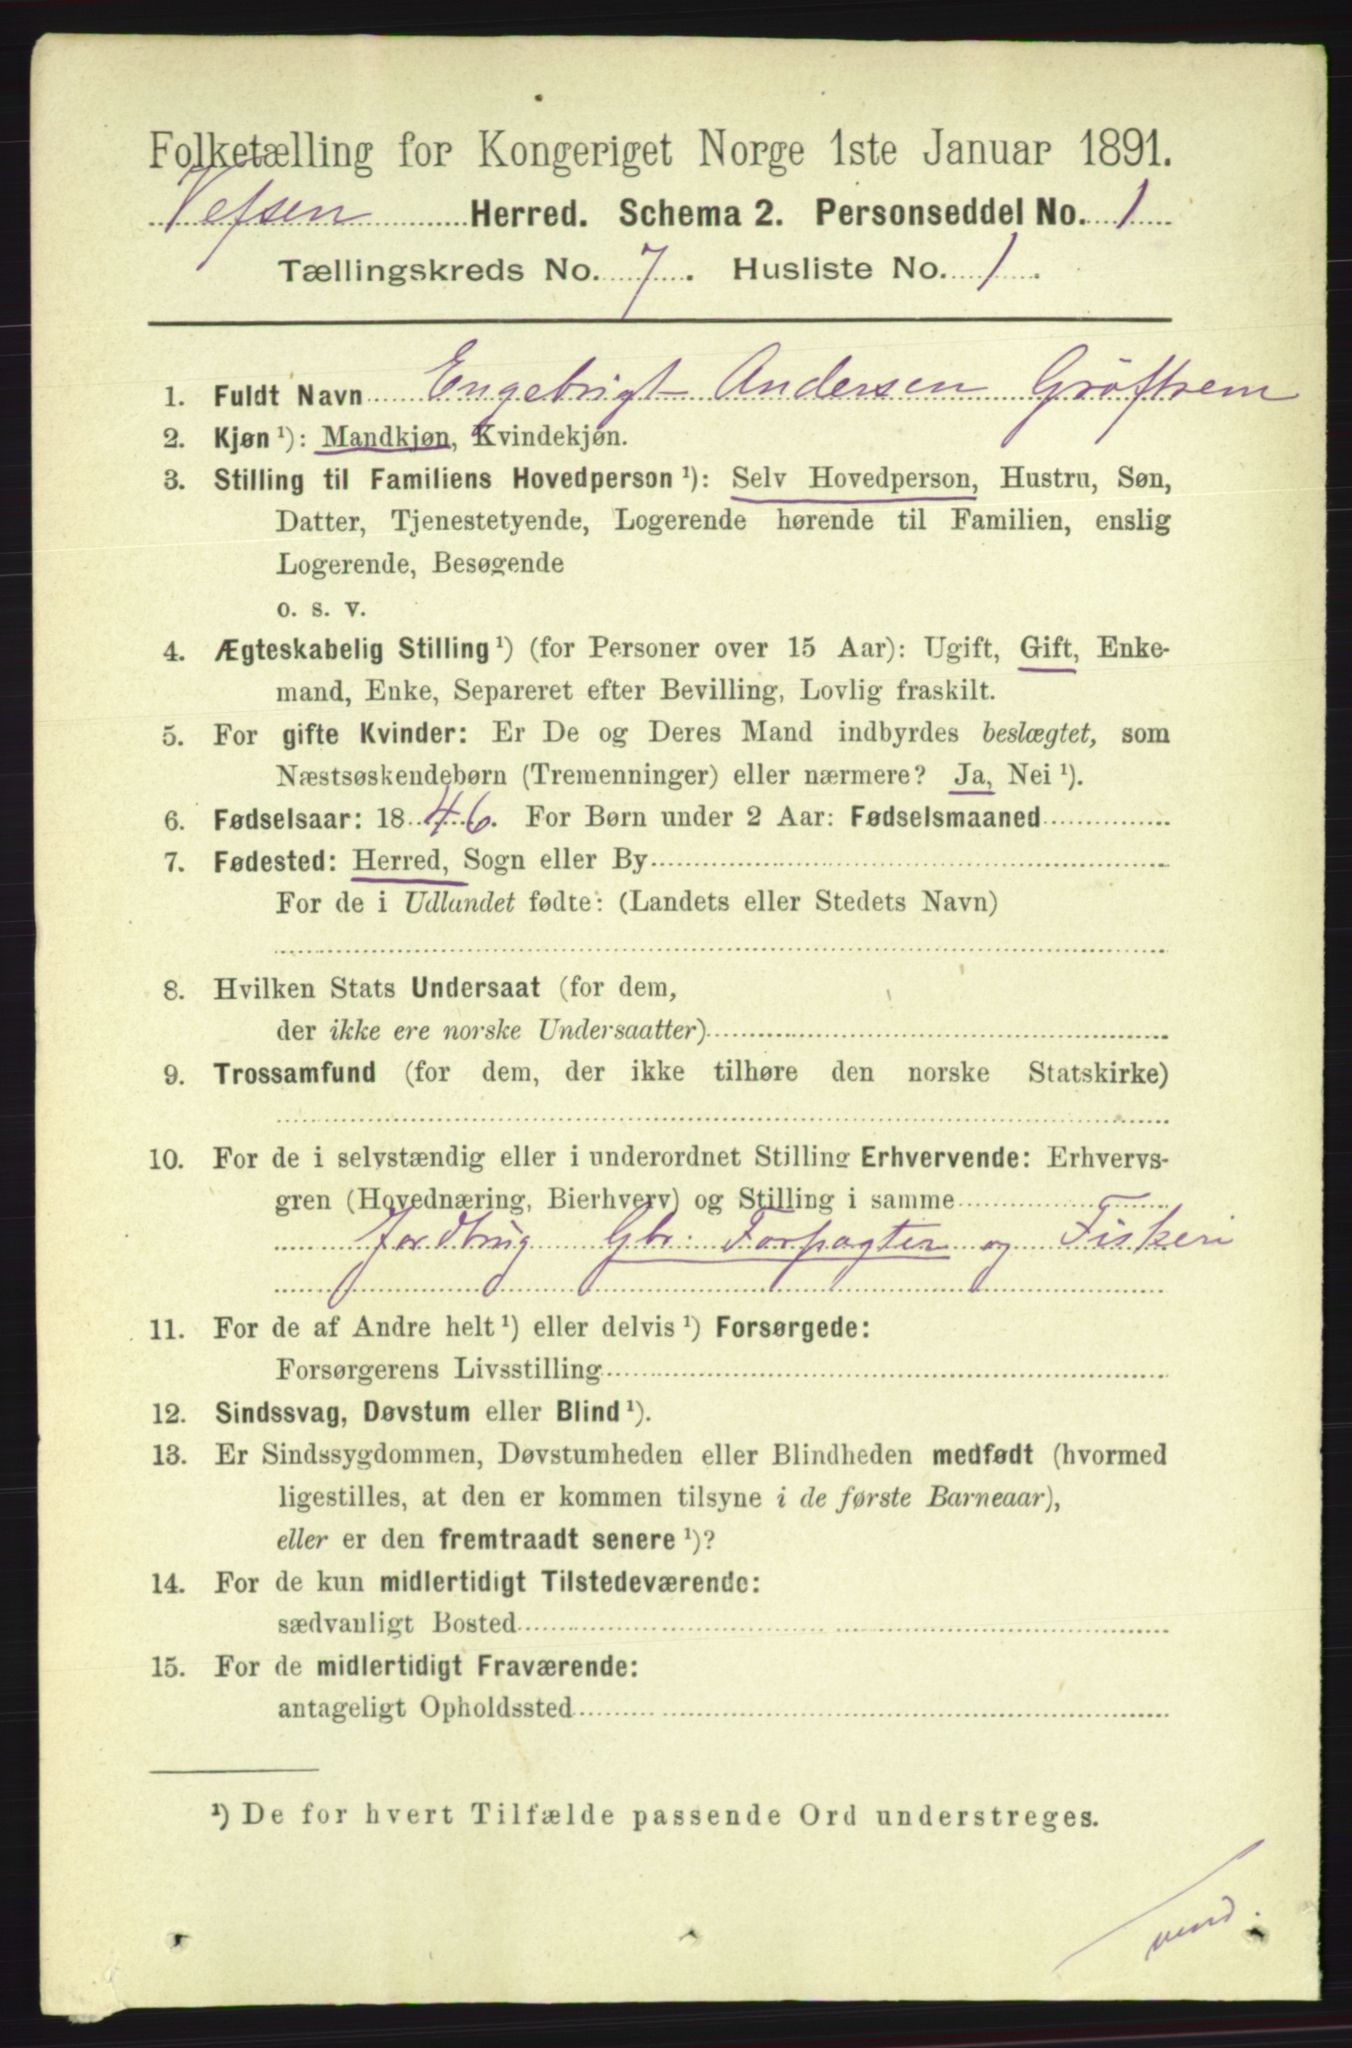 Folketælling for Kongeriget Norge 1ste Januar 1891.
Vefsen Herred. Schema 2. Personseddel No. 1
Tællingskreds No. 7. Husliste No. 1.
1. Fuldt Navn Engebrigt Andersen Gröftrem
2. Kjøn ¹): Mandkjøn, Kvindekjøn.
3. Stilling til Familiens Hovedperson ¹): Selv Hovedperson, Hustru, Søn,
Datter, Tjenestetyende, Logerende hørende til Familien, enslig
Logerende, Besøgende
o. s. v.
4. Ægteskabelig Stilling ¹) (for Personer over 15 Aar): Ugift, Gift, Enke-
mand, Enke, Separeret efter Bevilling, Lovlig fraskilt.
5. For gifte Kvinder: Er De og Deres Mand indbyrdes beslægtet, som
Næstsøskendebørn (Tremenninger) eller nærmere? Ja, Nei ¹).
6. Fødselsaar: 1846. For Børn under 2 Aar: Fødselsmaaned
7. Fødested: Herred, Sogn eller By
For de i Udlandet fødte: (Landets eller Stedets Navn)
8. Hvilken Stats Undersaat (for dem,
der ikke ere norske Undersaatter)
9. Trossamfund (for dem, der ikke tilhøre den norske Statskirke)
10. For de i selvstændig eller i underordnet Stilling Erhvervende: Erhvervs-
gren (Hovednæring, Bierhverv) og Stilling i samme
Jordbrug Gbr. Forpagter og Fiskeri
11. For de af Andre helt ¹) eller delvis ¹) Forsørgede:
Forsørgerens Livsstilling
12. Sindssvag, Døvstum eller Blind ¹).
13. Er Sindssygdommen, Døvstumheden eller Blindheden medfødt (hvormed
ligestilles, at den er kommen tilsyne i de første Barneaar),
eller er den fremtraadt senere ¹)?
14. For de kun midlertidigt Tilstedeværende:
sædvanligt Bosted
15. For de midlertidigt Fraværende:
antageligt Opholdssted
¹) De for hvert Tilfælde passende Ord understreges.
vend.